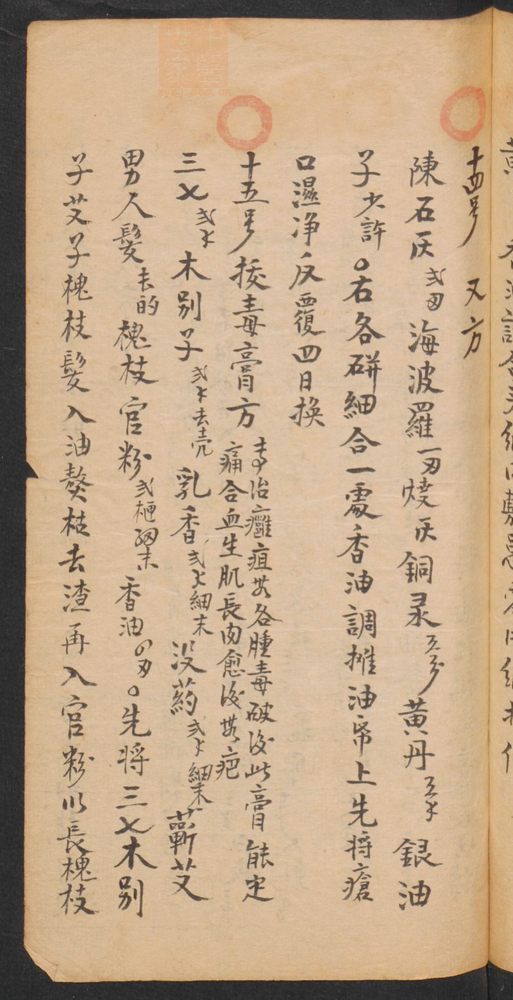 十四号 又方
陳石灰 弍刄 海波羅 一刄 燒灰 銅彔 五分 黃丹 五卜 銀油
子少許。右各研細合一處香油調攤油帋上先將瘡
口濕净反覆四日換
十五号 拔毒膏方 專治癰疽其各腫毒破後此膏能定
痛合血生肌長肉愈後其疤
三七 弍卜 木別子 弍卜去壳 乳香 弍卜細末 没药 弍卜細末 蘄艾
男人髮 去的 槐枝 官粉 細末 香油 刄。先將三七木別
子艾子槐枝髮入油熬枯去渣再入官粉以長槐枝